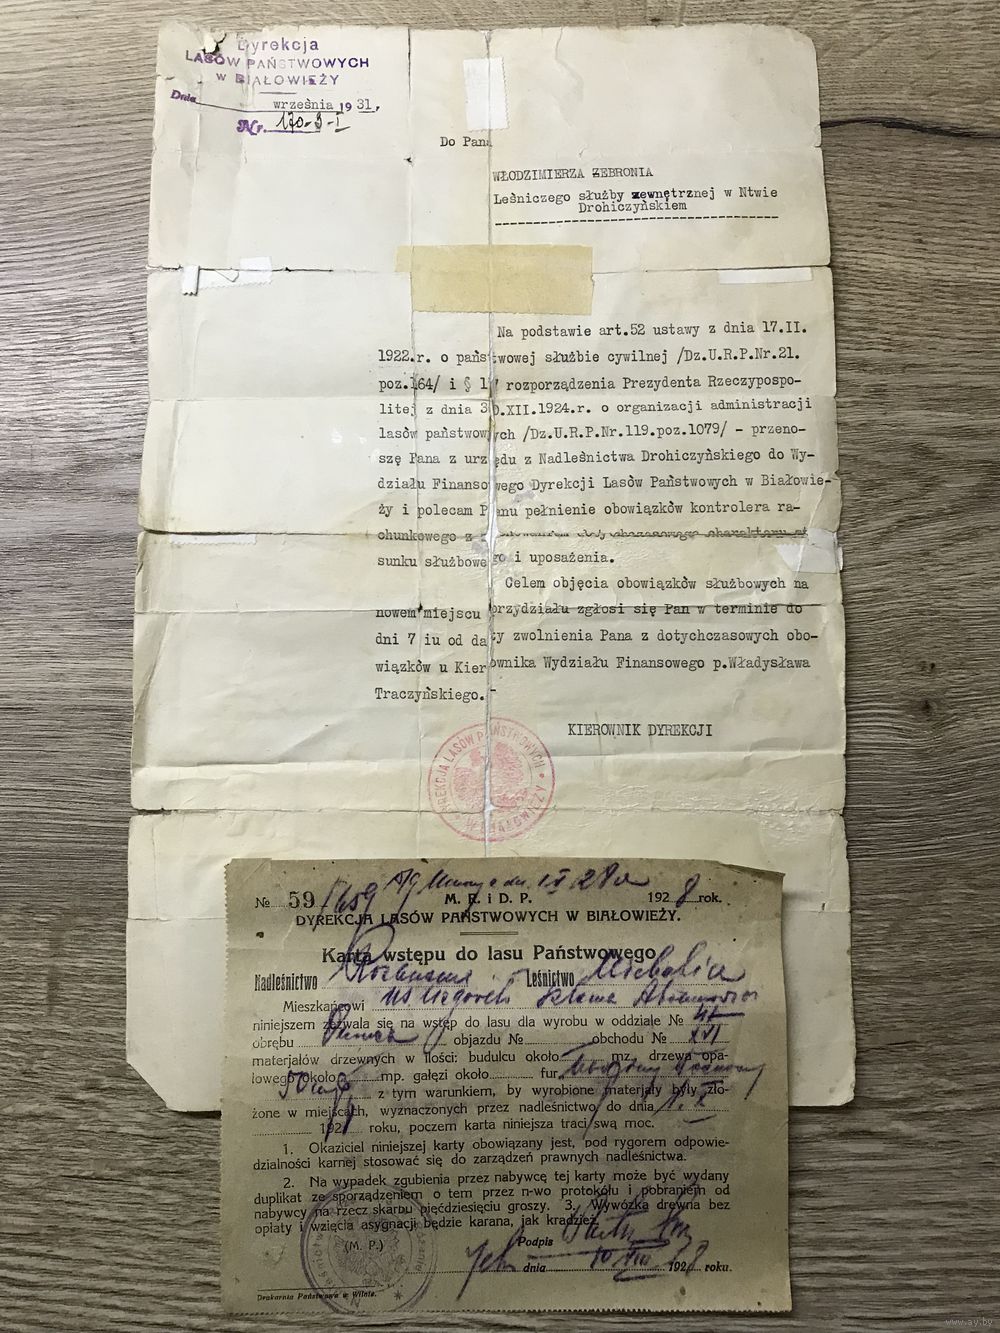 Dyrekcja
LASÓW PAŃSTWOWYCH
W BIAŁOWIEŻY
Dnia września 1931,
Nr. 170-9-I
Do Pana
WŁODZIMIERZA ZEBRONIA
Leśniczego służby zewnętrznej w Ntwie
Drohiczyńskiem
Na podstawie art.52 ustawy z dnia 17.II.
1922.r. o państwowej służbie cywilnej /Dz.U.R.P.Nr.21.
poz.164/ i § rozporządzenia Prezydenta Rzeczypospo-
litej z dnia 30.XII.1924.r. o organizacji administracji
lasów państwowych /Dz.U.R.P.Nr.119.poz.1079/ - przeno-
szę Pana z urzędu z Nadleśnictwa Drohiczyńskiego do Wy-
działu Finansowego Dyrekcji Lasów Państwowych w Białowie-
ży i polecam Panu pełnienie obowiązków kontrolera ra-
chunkowego z dotychczasowego charakteru st
sunku służbowego i uposażenia.
Celem objęcia obowiązków służbowych na
nowem miejscu przydziału zgłosi się Pan w terminie do
dni 7 iu od daty zwolnienia Pana z dotychczasowych obo-
wiązków u Kierownika Wydziału Finansowego p.Władysława
Traczyńskiego.-
KIEROWNIK DYREKCJI
DYREKCJA LASÓW PAŃSTWOWYCH W BIAŁOWIEŻY
№ 59/659 M. R. i D. P. 1928 rok.
DYREKCJA LASÓW PAŃSTWOWYCH W BIAŁOWIEŻY.
Karta wstępu do lasu Państwowego
Nadleśnictwo Leśnictwo
Mieszkańcowi
niniejszem zezwala się na wstęp do lasu dla wyrobu w oddziale №
obrębu objazdu № obchodu № XVI
materjałów drzewnych w ilości: budulcu około mz. drzewa opa-
łowego około mp. gałęzi około fur
z tym warunkiem, by wyrobione materjały były zło-
żone w miejscach, wyznaczonych przez nadleśnictwo do dnia
192 roku, poczem karta niniejsza traci swą moc.
1. Okaziciel niniejszej karty obowiązany jest, pod rygorem odpowie-
dzialności karnej stosować się do zarządzeń prawnych nadleśnictwa.
2. Na wypadek zgubienia przez nabywcę tej karty może być wydany
duplikat ze sporządzeniem o tem przez n-wo protokółu i pobraniem od
nabywcy na rzecz skarbu pięćdziesięciu groszy. 3. Wywózka drewna bez
opłaty i wzięcia asygnacji będzie karana, jak kradzież.
(M. P.) Podpis
dnia 10 VIII 1928 roku.
Drukarnia Państwowa w Wilnie.
www.ay.by